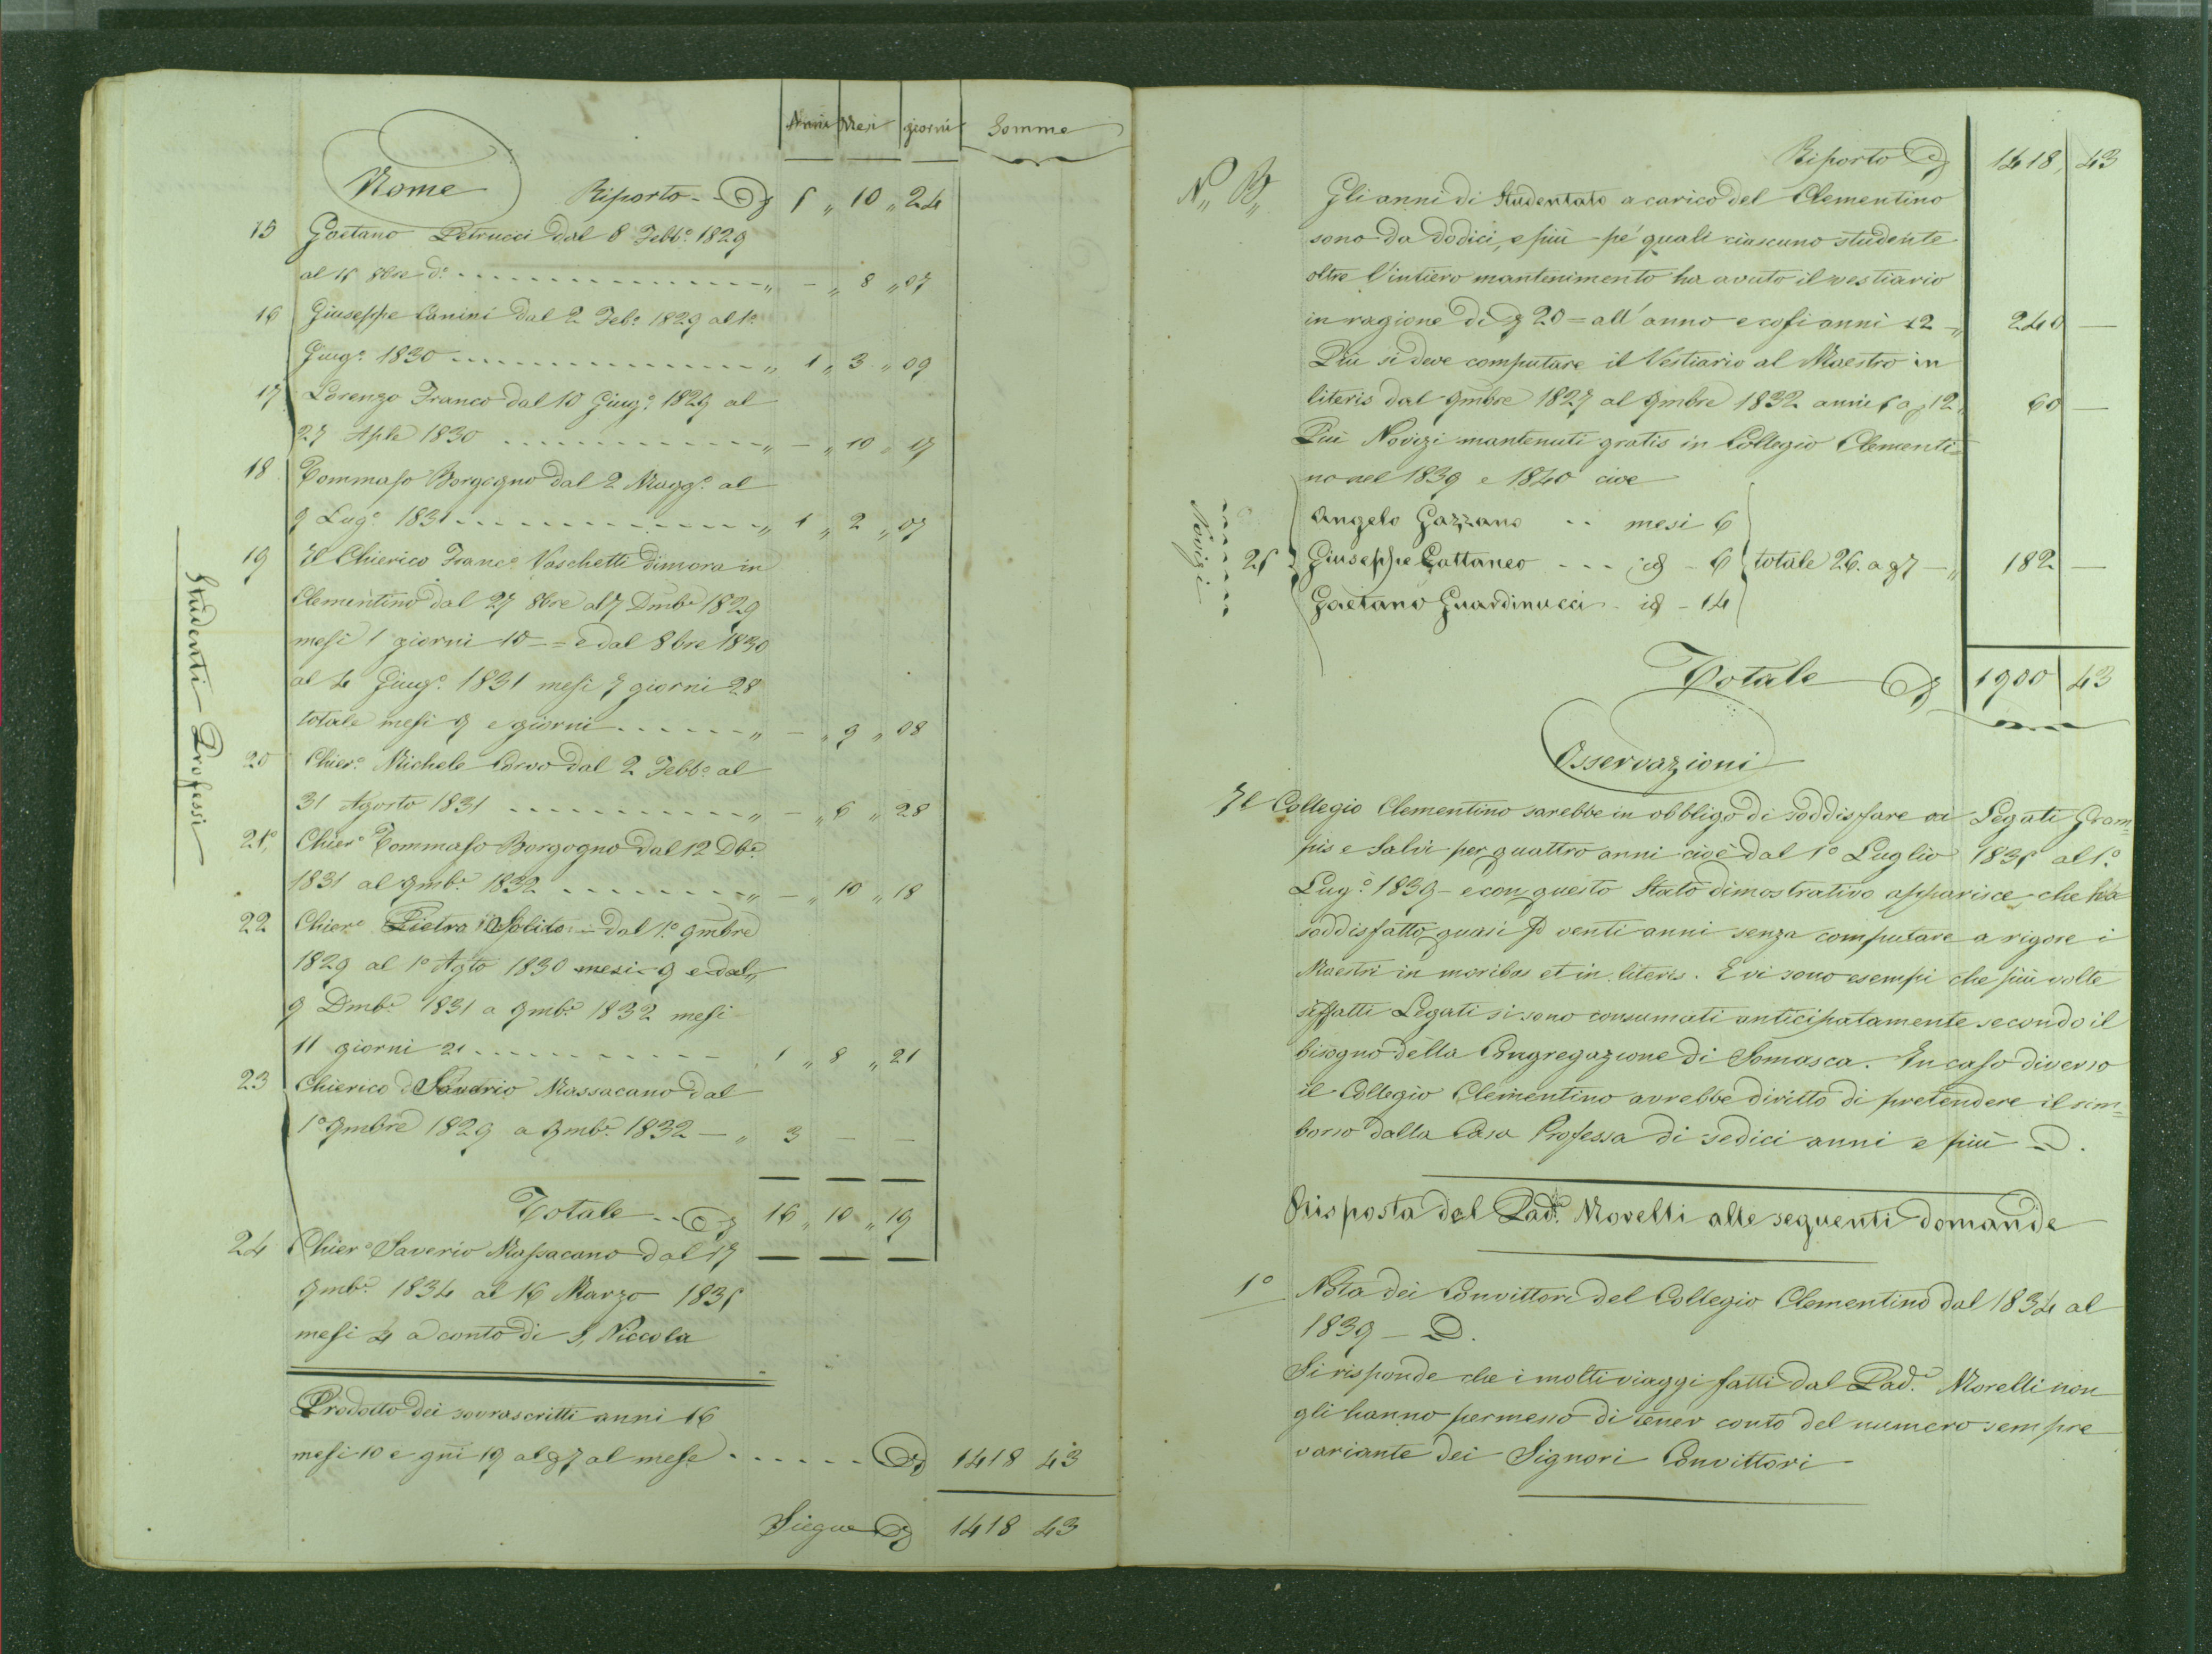 Anni Mesi giorni Somme
Nome Riporto 5 „ 10 „ 24
15 Gaetano Petrucci dal 8 Febb.º 1829
al 15 8bre d.º „ - „ 8 „ 07
16 Giuseppe Canini dal 2 Feb.º 1829 al 1º
Giug.º 1830 „ 1 „ 3 „ 09
17 Lorenzo Franco dal 10 Giug.º 1829 al
27 Aple 1830 „ - „ 10 „ 17
18 Tommaso Borgogno dal 2 Magg.º al
9 Lug.º 1831 „ 1 „ 2 „ 07
19 Il Chierico Franc.º Vaschetti dimora in
Clementino dal 27 8bre al 7 Dmb.e 1829
mesi 1 giorni 10 = e dal 8bre 1830
al 4 Giug.º 1831 mesi 7 giorni 28
totale mesi 9 e giorni „ - „ 9 „ 08
20 Chier.º Michele Corvo dal 2 Febb.º al
31 Agosto 1831 „ - „ 6 „ 28
21º Chier.º Tommaso Borgogno dal 12 Dbe
1831 al 9mb.e 1832 „ - „ 10 „ 18
22 Chier.º Pietro Solito - dal 1.º 9mbre
1829 al 1º Agto 1830 mesi 9 e dal
9 Dmb.e 1831 a 9mb.e 1832 mesi
11 giorni 21 1 „ 8 „ 21
23 Chierico d Saverio Massacano dal
1º 9mbre 1829 a 9mb.e 1832 — „ 3 — —
Totale 16 „ 10 „ 19
24 Chier.º Saverio Massacano dal 17
9mb.e 1834 al 16 Marzo 1835
mesi 4 a conto di S. Niccola
Studenti Professi
Prodotto dei sovrascritti anni 16
mesi 10 e gni 19 a 7 al mese 1418 43
Siegue 1418 43
Riporto 1418, 43
N„ B„ Gli anni di Studentato a carico del Clementino
sono da dodici, e più pe' quali ciascuno studente
oltre l'intiero mantenimento ha avuto il vestiario
in ragione di 20 = all'anno e cosi anni 12 — „ 240 —
Più si deve computare il Vestiario al Maestro in
literis dal 9mbre 1827 al 9mbre 1832 anni 5 a 12 60 —
Più Novizi mantenuti gratis in Collegio Clementi=
no nel 1839 e 1840 cioe
Angelo Gazzano mesi 6
25 Giuseppe Cattaneo - - - id - 6 totale 26. a 7 — „ 182 —
Gaetano Guardinucci id - 14
Novizi
Totale 1900 43
Osservazioni
Il Collegio Clementino sarebbe in obbligo di soddisfare ai Legati Gram=
pis e Salvi per quattro anni cioè dal 1º Luglio 1835 al 1.º
Lug.º 1839 - e con questo Stato dimostrativo apparisce che ha
soddisfatto quasi venti anni senza computare a rigore i
Maestri in moribus et in literis. E vi sono esempi che più volte
siffatti Legati si sono consumati anticipatamente secondo il
bisogno della Congregazione di Somasca. In caso diverso
il Collegio Clementino avrebbe diritto di pretendere il rim=
borso dalla Casa Professa di sedici anni e più
Risposta del Pad.e Morelli alle seguenti domande
1º Nota dei Convittori del Collegio Clementino dal 1834 al
1839 —
Si risponde che i molti viaggi fatti dal Pad.e Morelli non
gli hanno permesso di tener conto del numero sempre
variante dei Signori Convittori